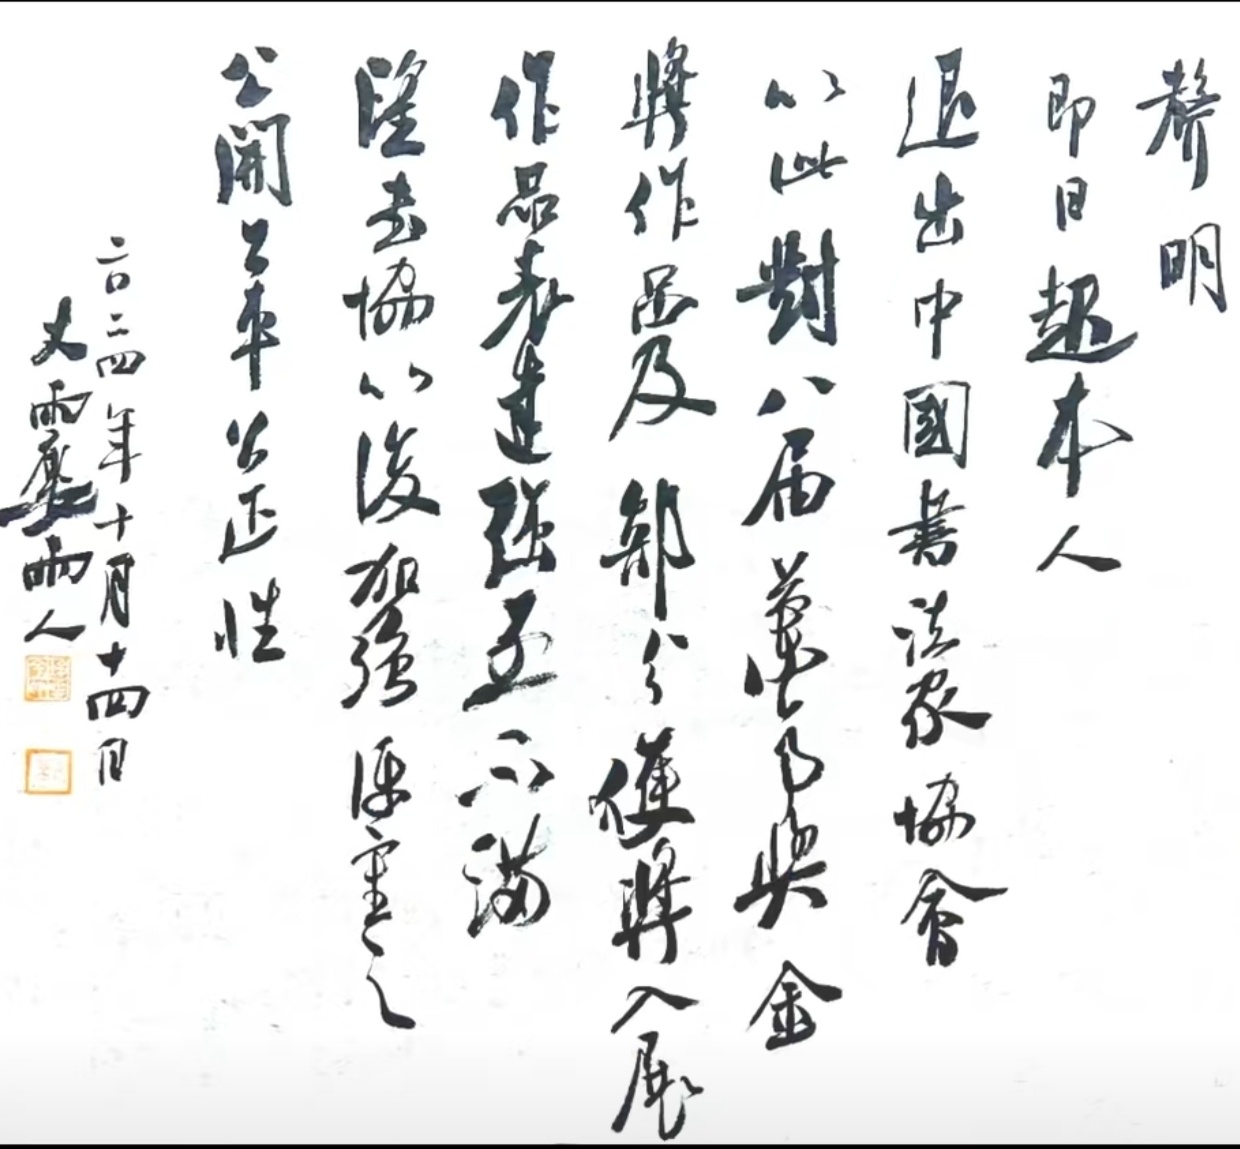 聲明
即日起本人
退出中國書法家協會
以此對八届蘭亭奖金
獎作品及部分獲獎入展
作品表達强烈不滿
望書協以後加强評審之
公開公平公正性
二〇二四年十月十四日
雨人